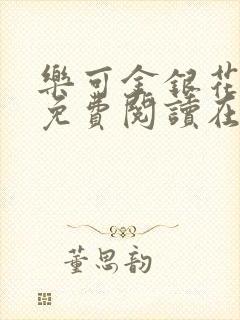 樂可金銀花
免費閱讀在
董思韵